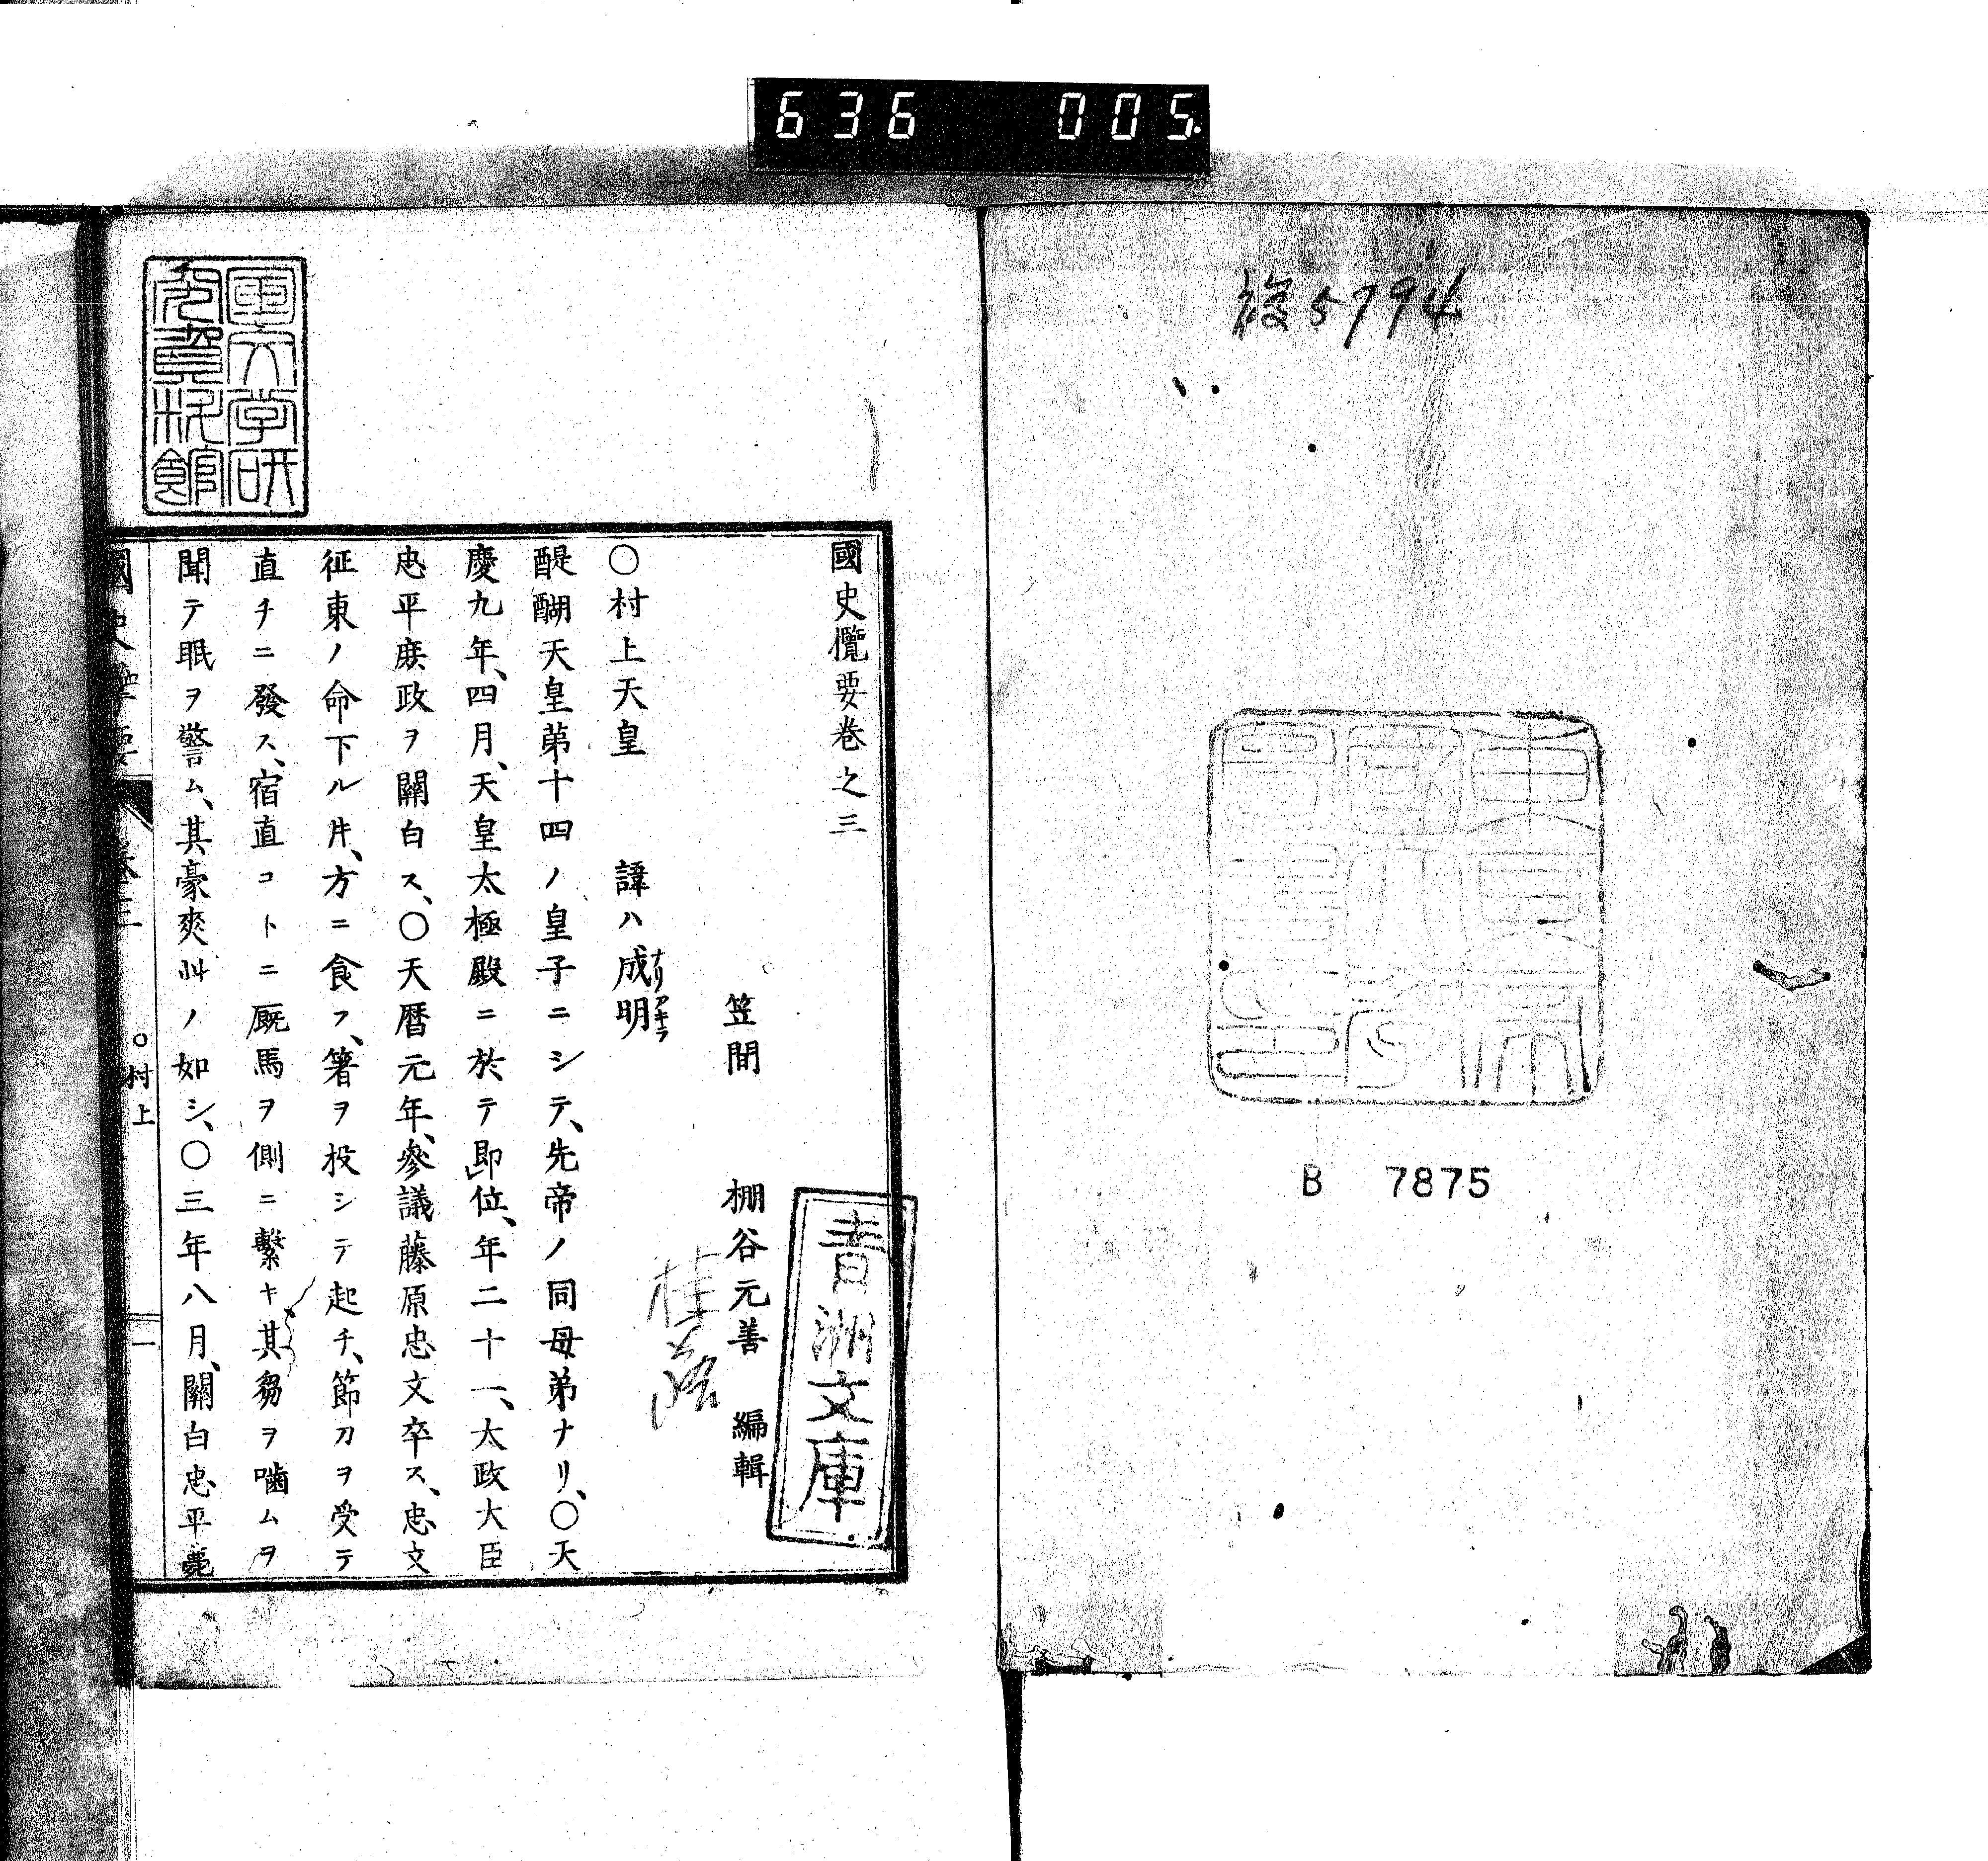 636 005.
複5794
東京帝國大學圖書印
B 7875
國史儖要卷之三
青洲文庫
笠間 棚谷元善 編輯
○村上天皇 諱ハ成明
ナリアキラ
醍醐天皇第十四ノ皇子ニシテ、先帝ノ同母弟ナリ、○天
慶九年、四月、天皇太極殿ニ於テ即位、年二十一、太政大臣
忠平庶政ヲ關白ス、○天曆元年、參議藤原忠文卒ス、忠文
征東ノ命下ル片、方ニ食フ、箸ヲ投シテ起チ、節刀ヲ受テ
直チニ發ス、宿直コトニ厩馬ヲ側ニ繫キ其芻ヲ嚙ムヲ
聞テ眠ヲ警ム、其豪爽此ノ如シ、○三年八月、關白忠平薨
國史 要 卷三 ○村上 一
国文学研究資料館